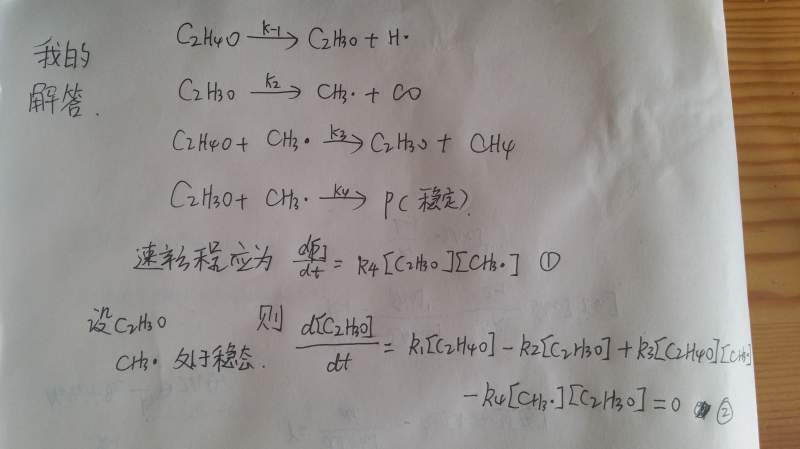 我的
解答.
C2H4O —k-1→ C2H3O + H·
C2H3O —k2→ CH3· + CO
C2H4O + CH3· —k3→ C2H3O + CH4
C2H3O + CH3· —k4→ P(稳定)
速率方程应为 d[P]/dt = k4[C2H3O][CH3·] ①
设C2H3O 则 d[C2H3O]/dt = k1[C2H4O] - k2[C2H3O] + k3[C2H4O][CH3·]
CH3· 处于稳态.
- k4[CH3·][C2H3O] = 0 ②